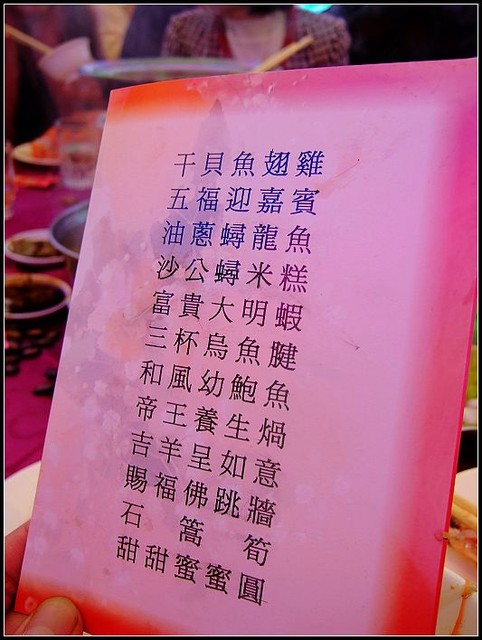 干貝魚翅雞
五福迎嘉賓
油蔥蟳龍魚
沙公蟳米糕
富貴大明蝦
三杯烏魚腱
和風幼鮑魚
帝王養生焗
吉羊呈如意
賜福佛跳牆
石篙筍
甜甜蜜蜜圓